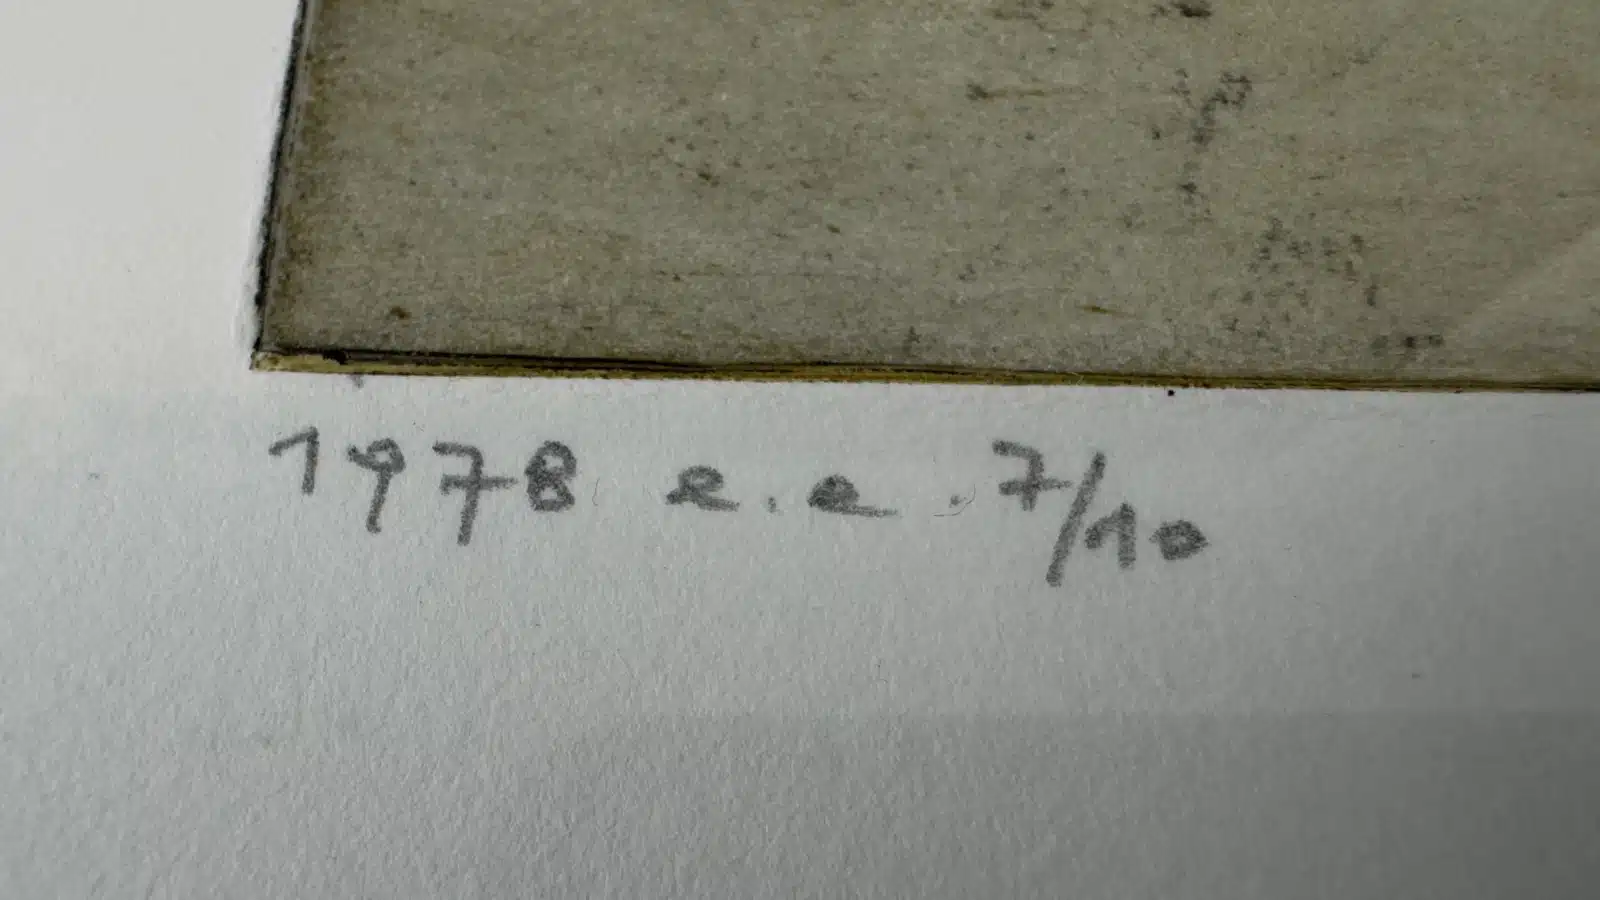 1978 e.a. 7/10